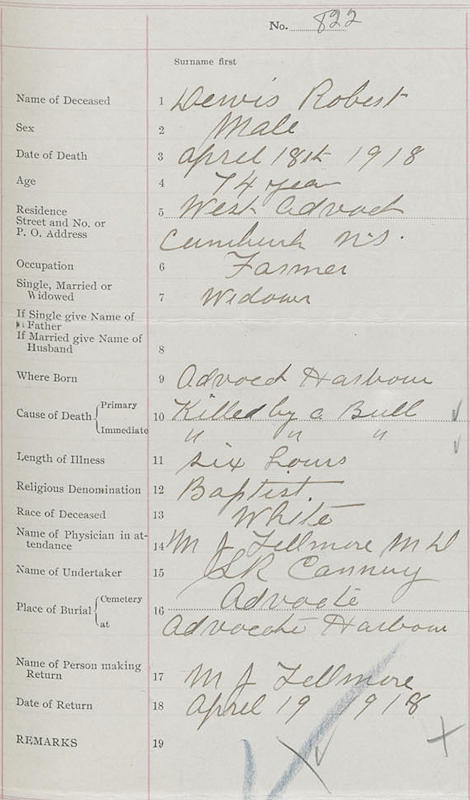 No. 822
Surname first
Name of Deceased 1 Dewis Robert
Sex 2 Male
Date of Death 3 April 18th 1918
Age 4 74 year
Residence
Street and No. or 5 West Advoct
P. O. Address Cumburk N.S.
Occupation 6 Farmer
Single, Married or
Widowed 7 Widowr
If Single give Name of
Father
If Married give Name of
Husband 8
Where Born 9 Advoect Harbour
Cause of Death { Primary 10 Killed by a Bull
Immediate " " "
Length of Illness 11 six hours
Religious Denomination 12 Baptist.
Race of Deceased 13 White
Name of Physician in at-
tendance 14 M J Fillmore M D
Name of Undertaker 15
Place of Burial { Cemetery 16 Advocate
at Advocate Harbour
Name of Person making
Return 17 M J Fillmore
Date of Return 18 April 19 1918
REMARKS 19